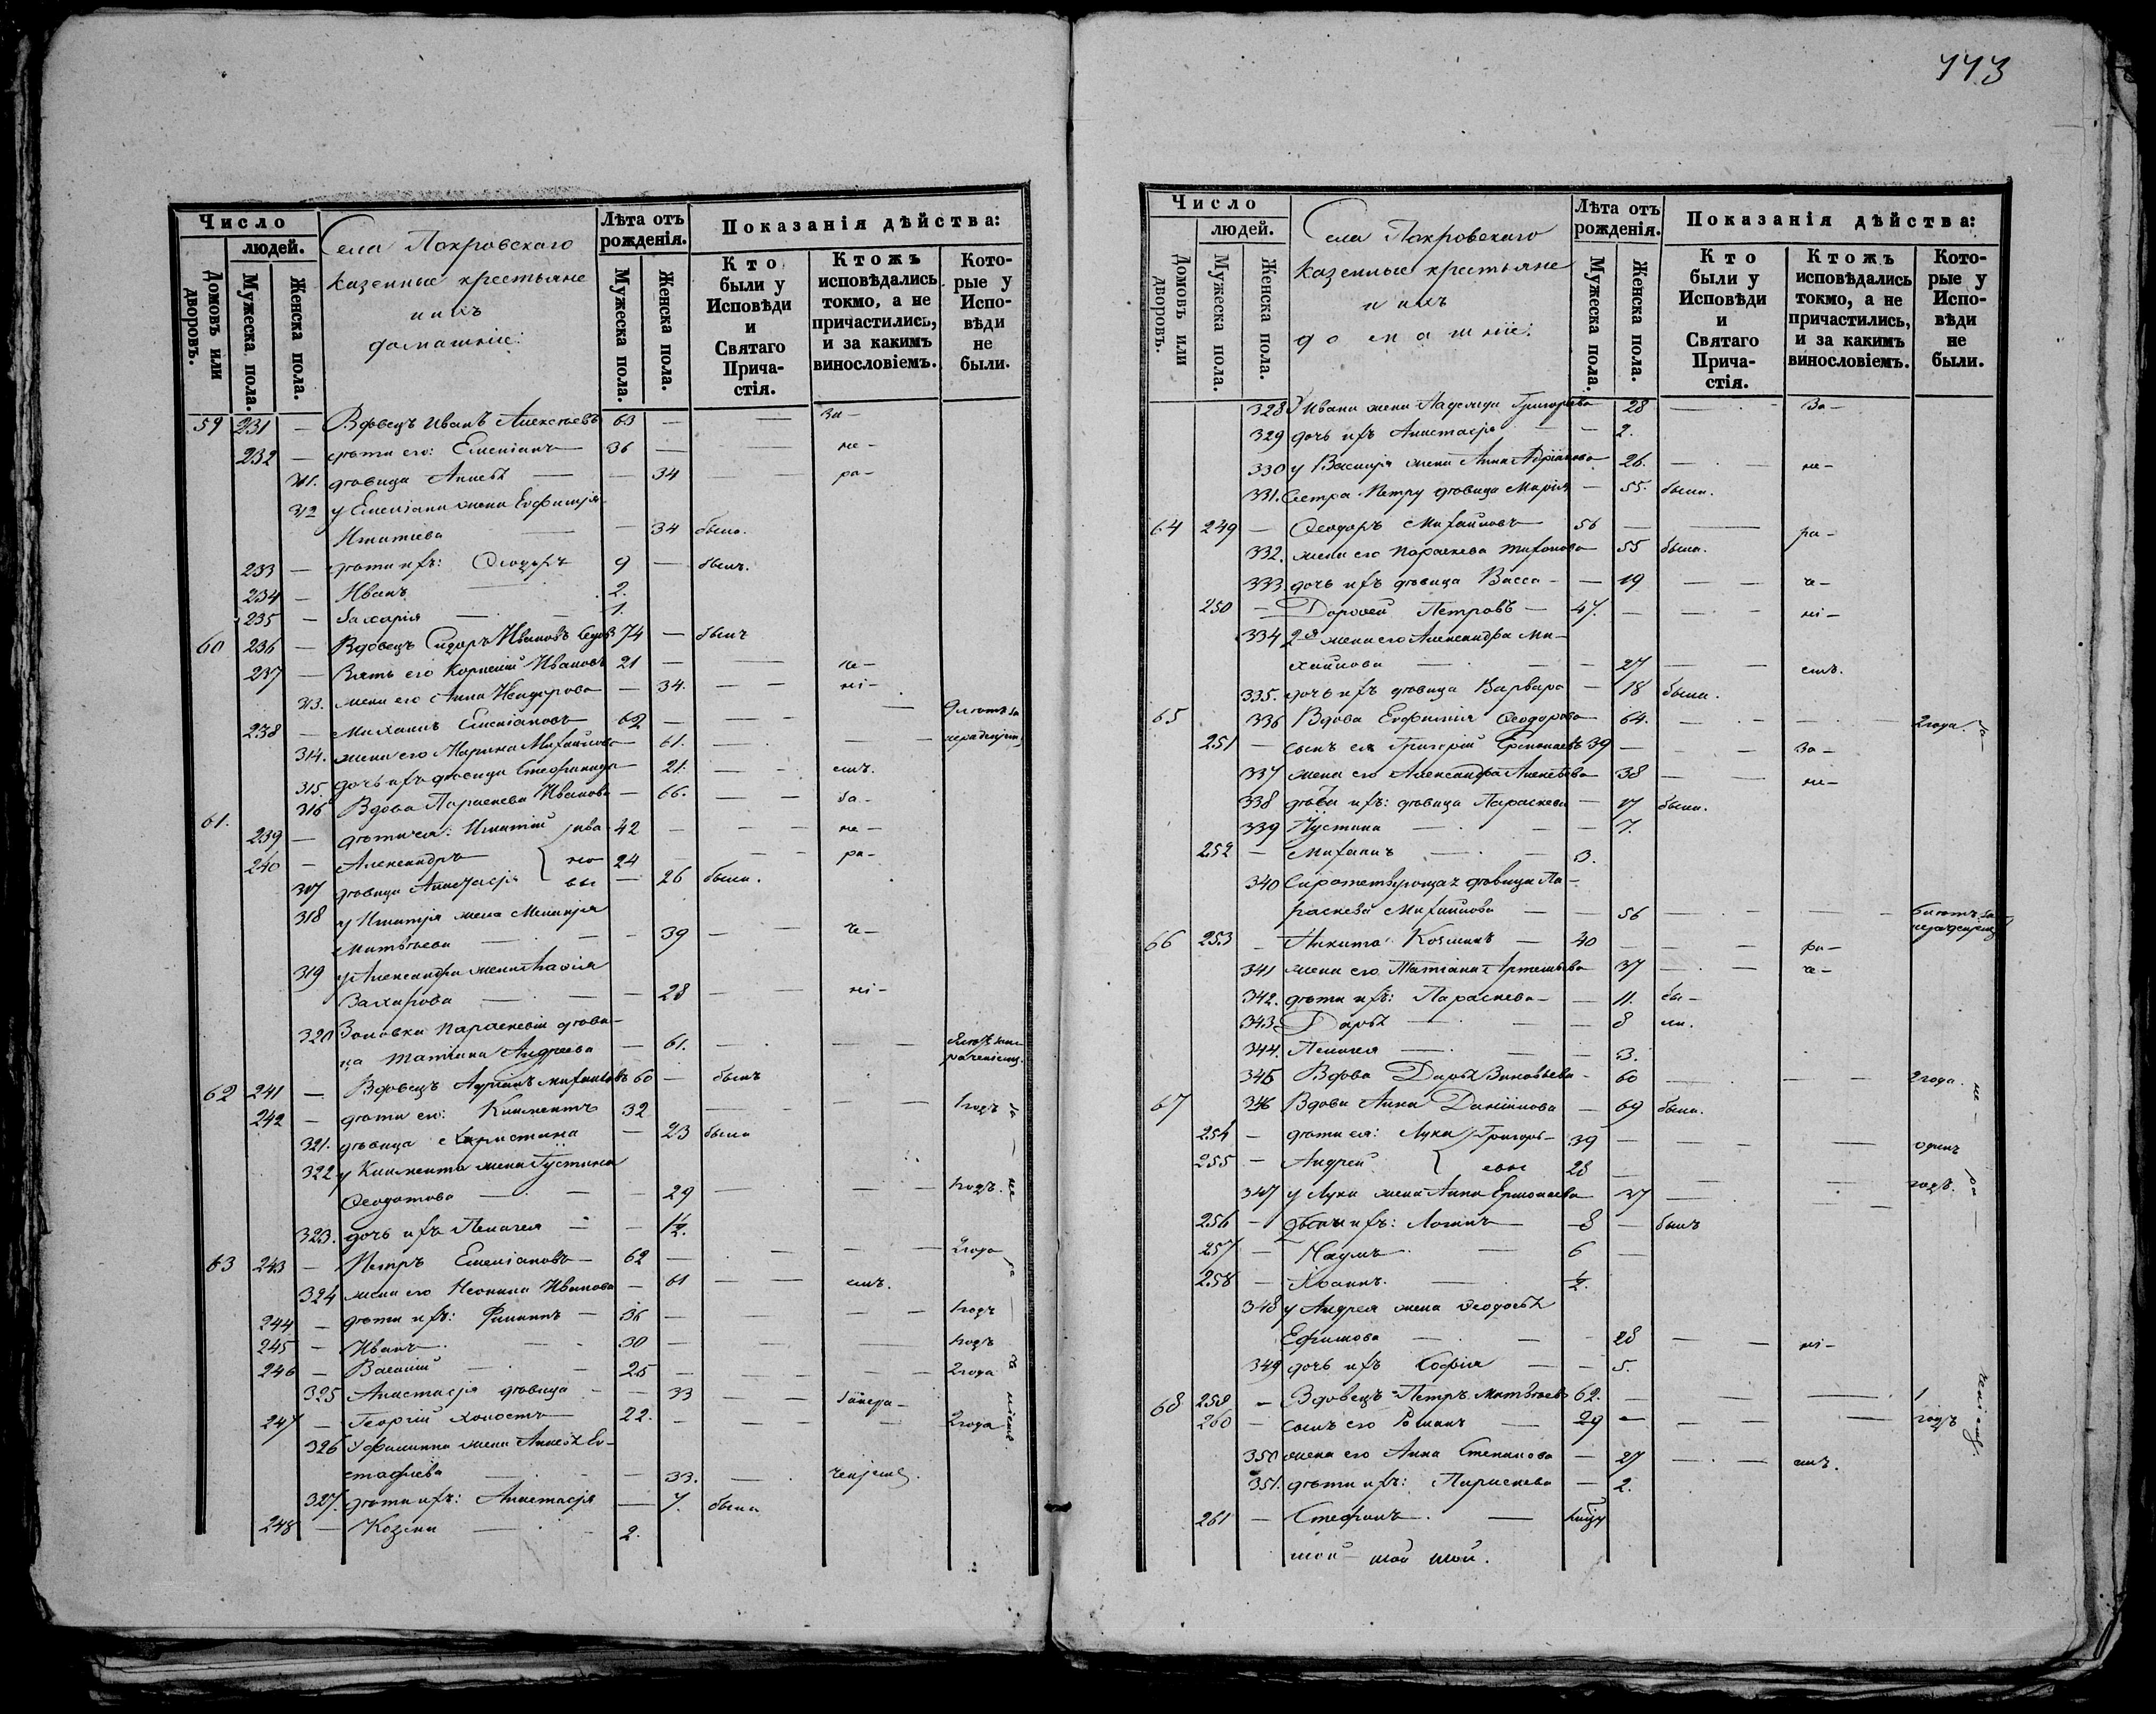 443
Число
людей.
Домовъ или дворовъ.
Мужеска пола.
Женска пола.
Села Покровскаго
казенные крестьяне
и ихъ
домашніе:
Лѣта отъ рожденія.
Мужеска пола.
Женска пола.
Показанія дѣйства:
Кто были у Исповѣди и Святаго Прича-стія.
Ктожъ исповѣдались токмо, а не причастились, и за какимъ винословіемъ.
Кото-рые у Испо-вѣди не были.
59 231 — Вдовецъ Иванъ Алексѣевъ 63 — — за-
232 — дѣти его: Емеліанъ 36 — — не-
311. дѣвица — — 34 — ра-
312 у Емеліана жена Евфимія
Игнатіева — — 34 была.
233 — дѣти ихъ: Ѳеодоръ 9 — былъ.
234 — Иванъ 2.
235 — Захарія — — 1.
60 236 — Вдовецъ Сидоръ Ивановъ 74 — былъ
237 — Зять его Корнилій Ивановъ 21 — — че-
313. жена его Анна — 34. — — ні-
238 — Михаилъ Емеліановъ 62 — — —
314. жена его Марина Михайлова — 61. — — —
315. дочь ихъ дѣвица Стефанида — 21. — — емъ.
61. 316 Вдова Параскева Иванова — 66. — — за-
239 — дѣти ея: Игнатій 42 — — не-
240 — Александръ 24 — — ра-
317 дѣвица Анастасія — 26 была.
318 у Игнатія жена Меланія
Матѳеева — — 39 — — че-
319 у Александра жена
Захарова — — 28 — — ні-
320 Золовка Параскевіи дѣви-
ца Татіана Андреева — 61. — — —
62 241 — Вдовецъ Адріанъ Михайловъ 60 — былъ
242 — дѣти его: Климентъ 32 — — — 1 годъ за
321. дѣвица Христина — 23 была
322 у Климента жена Іустина
Ѳеодотова — — 29 — — — 1 годъ. не
323. дочь ихъ Пелагея — — 1½.
63 243 — Петръ Емеліановъ 62 — — — 2 года ра
324 жена его Неонила Иванова — 61 — — емъ.
244 — дѣти ихъ: Филиппъ — 36 — — — 1 годъ
245 — Иванъ — 30 — — — 1 годъ
246 — Василій — 25 — — — 2 года
325 Анастасія дѣвица — 33 — —
247 — Георгій холостъ 22. — — — 2 года
326 У Филиппа жена Ев-
стафіева — — 33. —
327. дѣти ихъ: Анастасія — 7. была
248 — Козма — — 2.
Число
людей.
Домовъ или дворовъ.
Мужеска пола.
Женска пола.
Села Покровскаго
казенные крестьяне
и ихъ
домашніе:
Лѣта отъ рожденія.
Мужеска пола.
Женска пола.
Показанія дѣйства:
Кто были у Исповѣди и Святаго Прича-стія.
Ктожъ исповѣдались токмо, а не причастились, и за какимъ винословіемъ.
Кото-рые у Испо-вѣди не были.
328 У Ивана жена Надежда Григорьева 28 — — за-
329 дочь ихъ Анастасія — — 2.
330 у Василія жена Анна Адріанова 26. — — не-
331. Сестра Петру дѣвица Марія — 55. была.
64 249 — Ѳеодоръ Михайловъ 56 — — ра-
332. жена его Параскева 55 была.
333. дочь ихъ дѣвица Васса — — 19 — — че-
250 — Дороѳей Петровъ — 47. — — ні-
334 2я жена его Александра Ми-
хайлова — — 27 — — емъ.
335. дочь ихъ дѣвица Варвара — 18 была.
65 336 Вдова Евфимія Ѳеодорова 64. — — — 2 года. за
251 — сынъ ея Григорій Ермолаевъ 39 — — за-
337 жена его Александра Алексѣева 38 — — не-
338 дѣти ихъ: дѣвица Параскева — 17 была.
339 Іустина — — 7.
252 — Михаилъ — 3.
340 дѣвица Па-
раскева Михайлова — — 56 — — —
66 253 — Никита Козминъ — 40 — — ра-
341 жена его Татіана Артемьева 37 — — че-
342. дѣти ихъ: Параскева — — 11. бы-
343. Дарья — — 8 ли.
344. Пелагея — — 3.
345 Вдова Дарья Зиновьева — 60 — — — 2 года. не
67 346 Вдова Анна Даніилова — 69 была.
254 — дѣти ея: Лука Григорь- 39 — — — одинъ
255 — Андрей евы 28 — — — годъ. ра
347 у Луки жена Анна Ермолаева 37 — — —
256 — дѣти ихъ: Логинъ 8 — былъ
257 — Наумъ — 6 —
258 — Іоаннъ. — ½.
348 у Андрея жена Ѳеодосья
Ефимова — — 28 — — ні-
349 дочь ихъ Софія — — 5.
68 259 — Вдовецъ Петръ Матѳеевъ 62. — — — 1
260 — сынъ его Романъ — 29 — — — годъ
350 жена его Анна Степанова — 27 — — емъ.
351. дѣти ихъ: Параскева — 2.
261 — Стефанъ. —